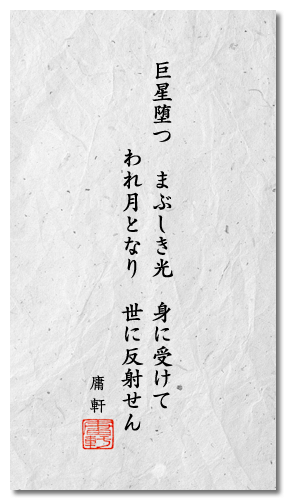 巨星堕つ　まぶしき光　身に受けて
われ月となり　世に反射せん
庸軒